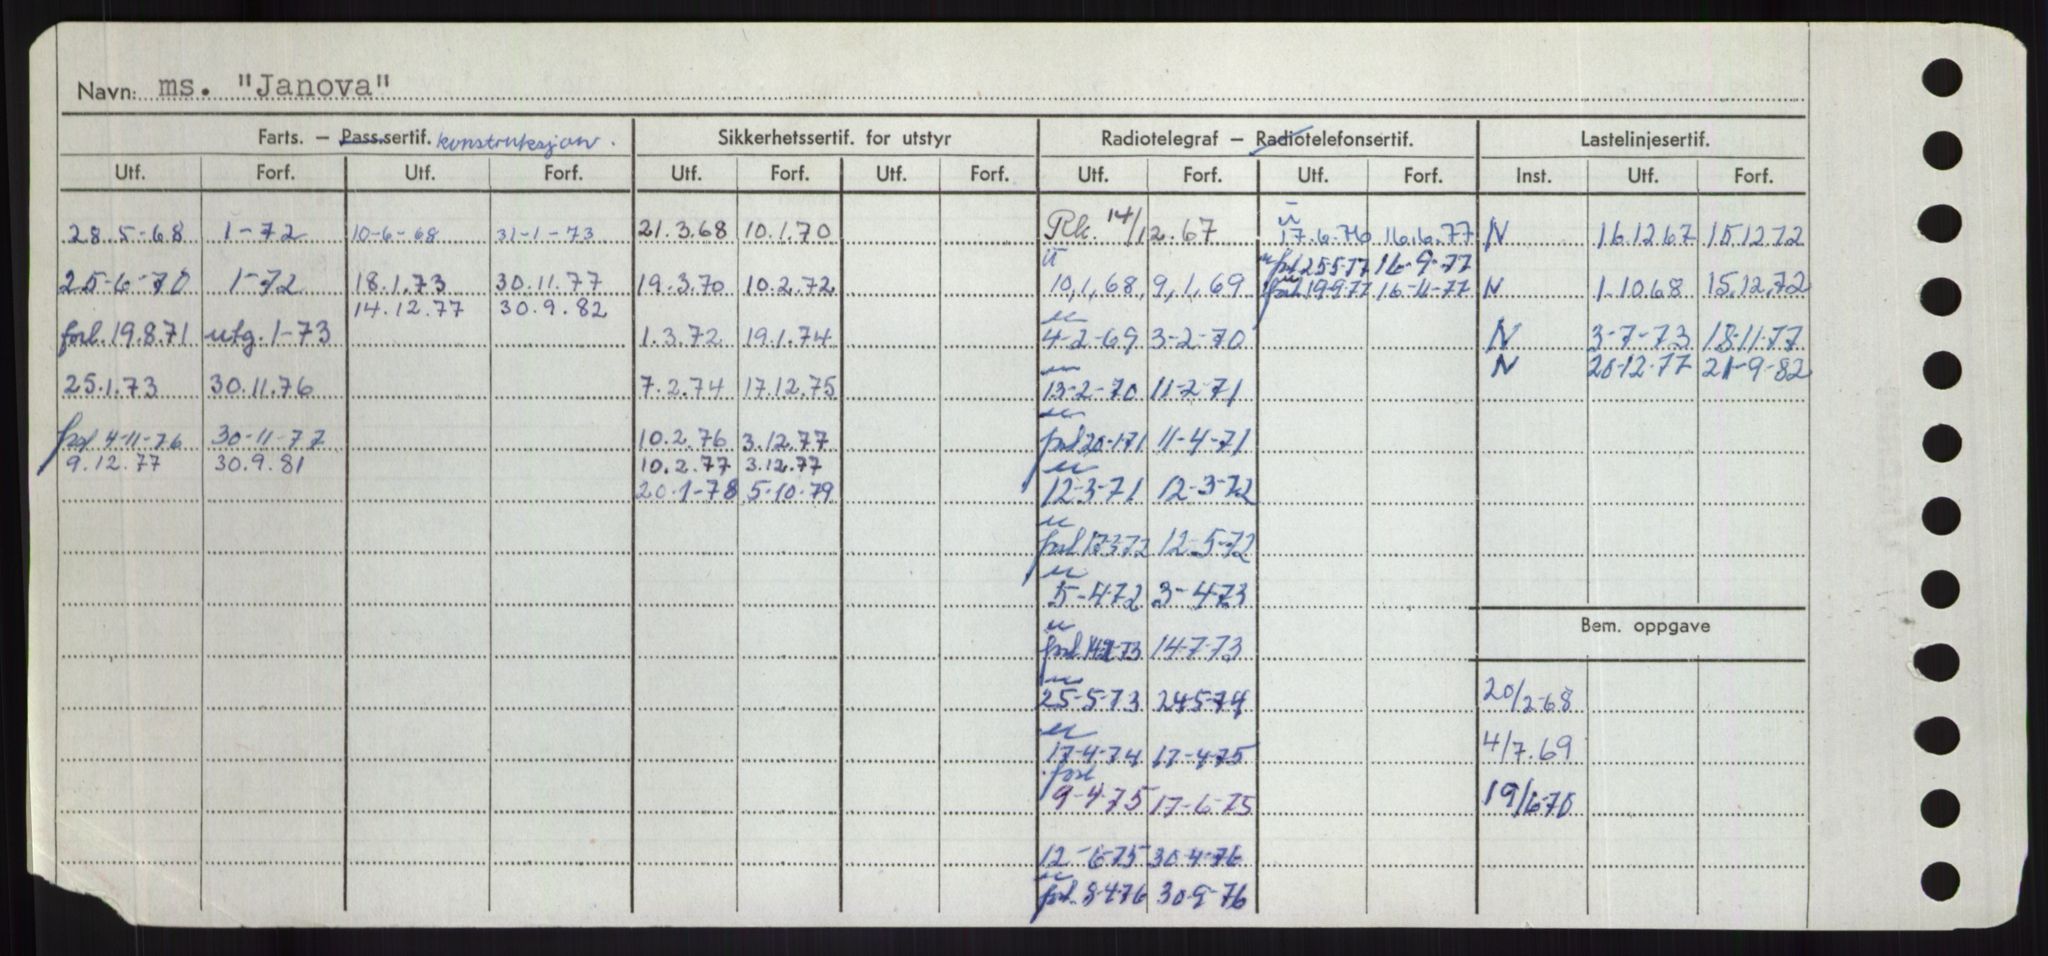 Navn: ms. "Janova"
Farts. — Pass.sertif. konstruksjon. Sikkerhetssertif. for utstyr Radiotelegraf — Radiotelefonsertif. Lastelinjesertif.
Utf. Forf. Utf. Forf. Utf. Forf. Utf. Forf. Utf. Forf. Utf. Forf. Inst. Utf. Forf.
28.5-68 1-72 10-6-68 31-1-73 21.3.68 10.1.70 14/12.67 17.6.76 16.6.77 N 16.12 67 15.12 72
forl 25-5-77 16-9-77
25-6-70 1-72 18.1.73 30.11.77 19.3.70 10.2.72 10,1,68, 9,1,69 forl. 19-9-77 16-11-77 N 1.10.68 15.12.72
14.12.77 30.9.82
forl. 19.8.71 utg. 1-73 1.3.72 19.1.74 4-2-69 3-2-70 N 3-7-73 18-11-77
N 20-12-77 21-9-82
25.1.73 30.11.76 7.2.74 17.12.75 13-2-70 11-2-71
forl 4-11-76 30-11-77 10.2.76 3.12.77 forl 20-1-71 11-4-71
9.12.77 30.9.81 10.2.77 3.12.77
20-1-78 5-10-79 12-3-71 12-3-72
forl 17-3-72 12-5-72
5-4-72 3-4-73
Bem. oppgave
forl. 14-7-73
25-5-73 24-5-74 20/2-68
17-4-74 17-4-75 4/7.69
forl
9-4-75 17-6-75 19/6-70
12-6-75 30-4-76
forl. 8-4-76 30-9-76